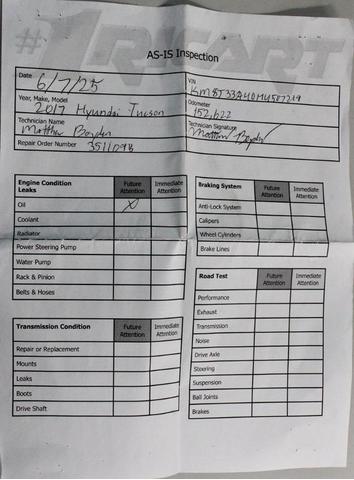 #1 RICART
AS-IS Inspection
Date 6/7/25
VIN
Year, Make, Model 2017 Hyundai Tucson
Odometer 152,622
Technician Name Matthew Boyden
Technician Signature Matthew Boyden
Repair Order Number
Engine Condition Future Attention Immediate Attention
Leaks
Oil X
Coolant
Radiator
Power Steering Pump
Water Pump
Rack & Pinion
Belts & Hoses
Transmission Condition Future Attention Immediate Attention
Repair or Replacement
Mounts
Leaks
Boots
Drive Shaft
Braking System Future Attention Immediate Attention
Anti-Lock System
Calipers
Wheel Cylinders
Brake Lines
Road Test Future Attention Immediate Attention
Performance
Exhaust
Transmission
Noise
Drive Axle
Steering
Suspension
Ball Joints
Brakes